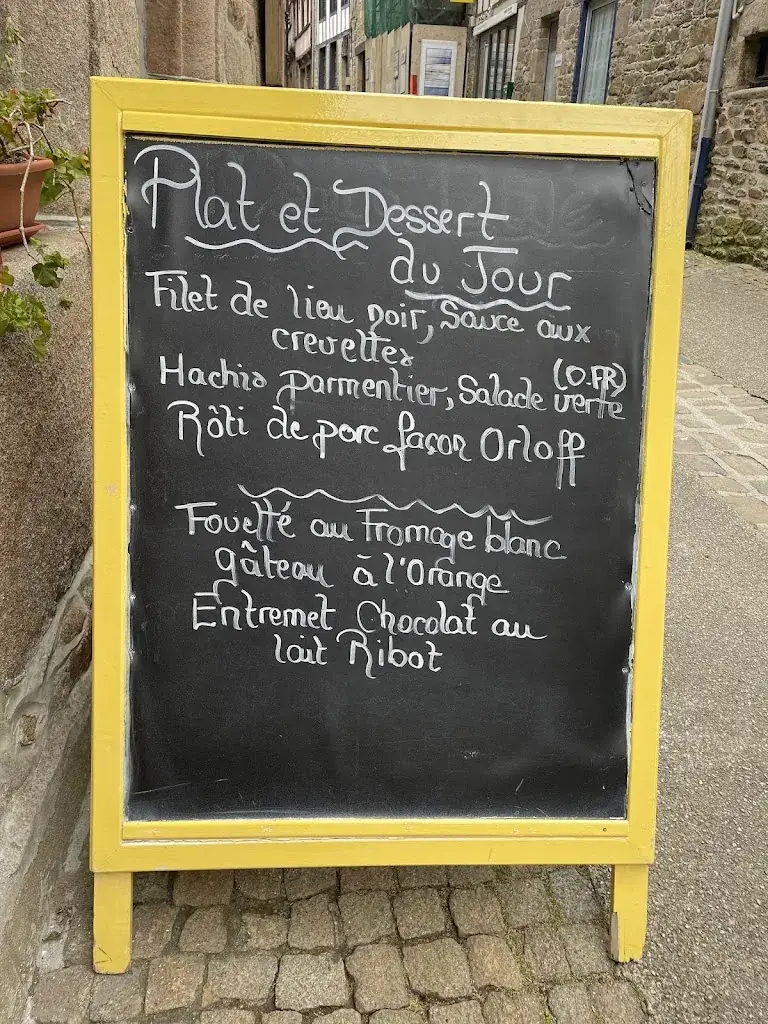 Plat et Dessert
du Jour
Filet de lieu noir, Sauce aux
crevettes
(O.FR)
Hachis parmentier, Salade verte
Rôti de porc façon Orloff
Fouetté au Fromage blanc
gâteau à l'Orange
Entremet Chocolat au
lait Ribot